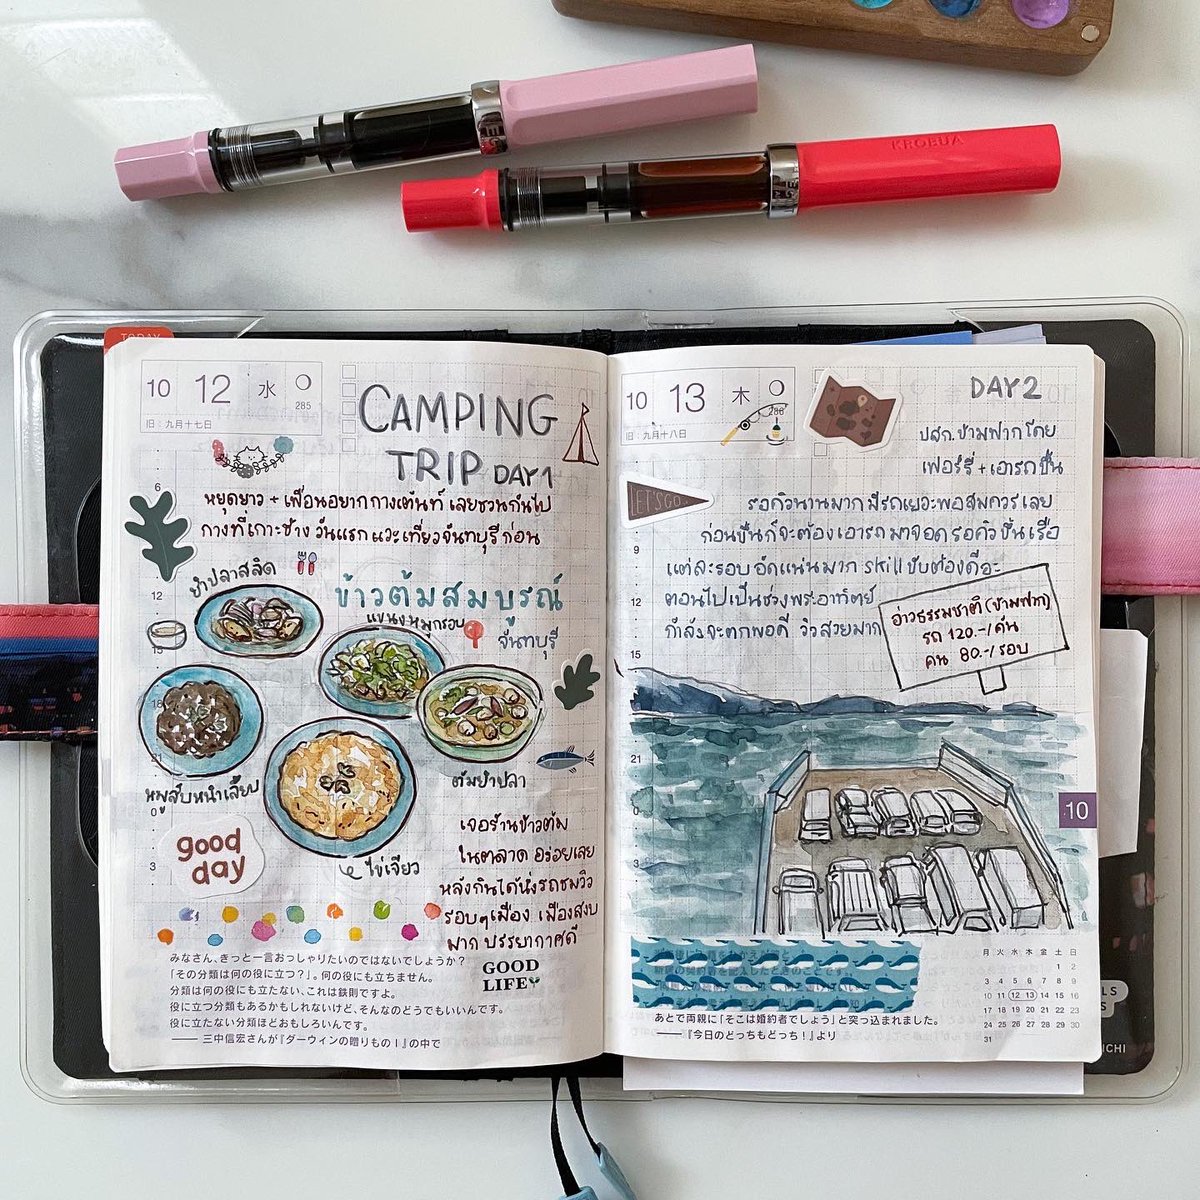 KROBUA
TODAY
10 12 水
285
旧：九月十七日
CAMPING
TRIP DAY 1
หยุดยาว + เพื่อนอยากกางเต้นท์ เลยชวนกันไป
กางที่เกาะช้าง วันแรก แวะเที่ยวจันทบุรีก่อน
ยำปลาสลิด
ข้าวต้มสมบูรณ์
แขนงหมูกรอบ
จันทบุรี
หมูสับหนำเลี้ยบ
ต้มยำปลา
ไข่เจียว
good
day
เจอร้านข้าวต้ม
ในตลาด อร่อยเลย
หลังกินได้นั่งรถชมวิว
รอบๆเมือง เมืองสงบ
มาก บรรยากาศดี
GOOD
LIFE
みなさん、きっと一言おっしゃりたいのではないでしょうか？
「その分類は何の役に立つ？」。何の役にも立ちません。
分類は何の役にも立たない、これは鉄則ですよ。
役に立つ分類もあるかもしれないけど、そんなのどうでもいいんです。
役に立たない分類ほどおもしろいんです。
—— 三中信宏さんが『ダーウィンの贈りものⅠ』の中で
10 13 木
286
旧：九月十八日
DAY 2
ปสก.ข้ามฟากโดย
เฟอร์รี่ + เอารถขึ้น
LET'S GO
รอคิวนานมาก มีรถเยอะพอสมควรเลย
ก่อนขึ้นก็จะต้องเอารถมาจอด รอคิวขึ้นเรือ
แต่ละรอบ อัดแน่นมาก skill ขับต้องดีอะ
ตอนไปเป็นช่วงพระอาทิตย์
กำลังจะตกพอดี วิวสวยมาก
อ่าวธรรมชาติ (ข้ามฟาก)
รถ 120.-/คัน
คน 80.-/รอบ
10
月 火 水 木 金 土 日
1 2
3 4 5 6 7 8 9
10 11 12 13 14 15 16
17 18 19 20 21 22 23
24 25 26 27 28 29 30
31
あとで両親に「そこは婚約者でしょう」と突っ込まれました。
——『今日のどっちもどっち！』より